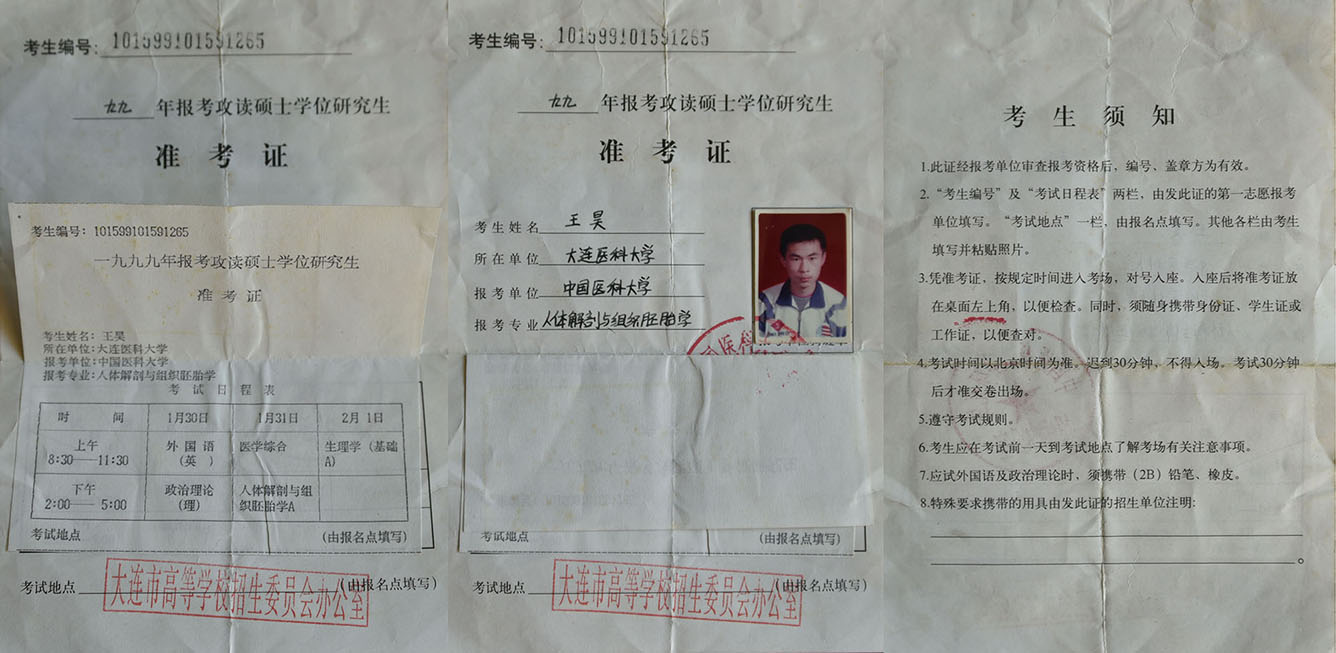 考生编号：101599101591265
九九 年报考攻读硕士学位研究生
准 考 证
考生编号：101599101591265
一九九九年报考攻读硕士学位研究生
准 考 证
考生姓名：王昊
所在单位：大连医科大学
报考单位：中国医科大学
报考专业：人体解剖与组织胚胎学
考 试 日 程 表
时 间 1月30日 1月31日 2月1日
上午 8:30——11:30 外国语(英) 医学综合 生理学（基础A）
下午 2:00——5:00 政治理论(理) 人体解剖与组织胚胎学A
考试地点 (由报名点填写)
考试地点 (由报名点填写)
大连市高等学校招生委员会办公室
考生编号：101599101591265
九九 年报考攻读硕士学位研究生
准 考 证
考生姓名 王昊
所在单位 大连医科大学
报考单位 中国医科大学
报考专业 人体解剖与组织胚胎学
考试地点 (由报名点填写)
考试地点 (由报名点填写)
大连市高等学校招生委员会办公室
考 生 须 知
1.此证经报考单位审查报考资格后，编号、盖章方为有效。
2.“考生编号”及“考试日程表”两栏，由发此证的第一志愿报考
单位填写。“考试地点”一栏，由报名点填写。其他各栏由考生
填写并粘贴照片。
3.凭准考证，按规定时间进入考场，对号入座。入座后将准考证放
在桌面左上角，以便检查。同时，须随身携带身份证、学生证或
工作证，以便查对。
4.考试时间以北京时间为准。迟到30分钟，不得入场。考试30分钟
后才准交卷出场。
5.遵守考试规则。
6.考生应在考试前一天到考试地点了解考场有关注意事项。
7.应试外国语及政治理论时，须携带（2B）铅笔、橡皮。
8.特殊要求携带的用具由发此证的招生单位注明: